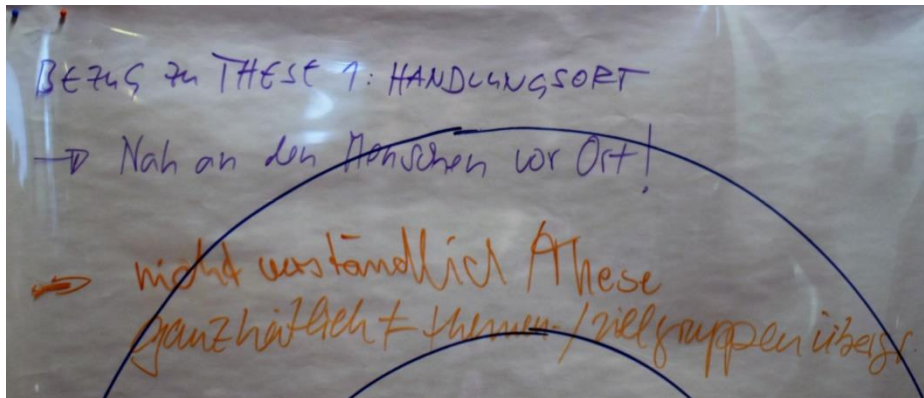 BEZUG ZU THESE 1: HANDLUNGSORT
→ Nah an den Menschen vor Ort!
→ nicht verständlich These
ganzheitlich ≠ themen-/zielgruppenübergr.